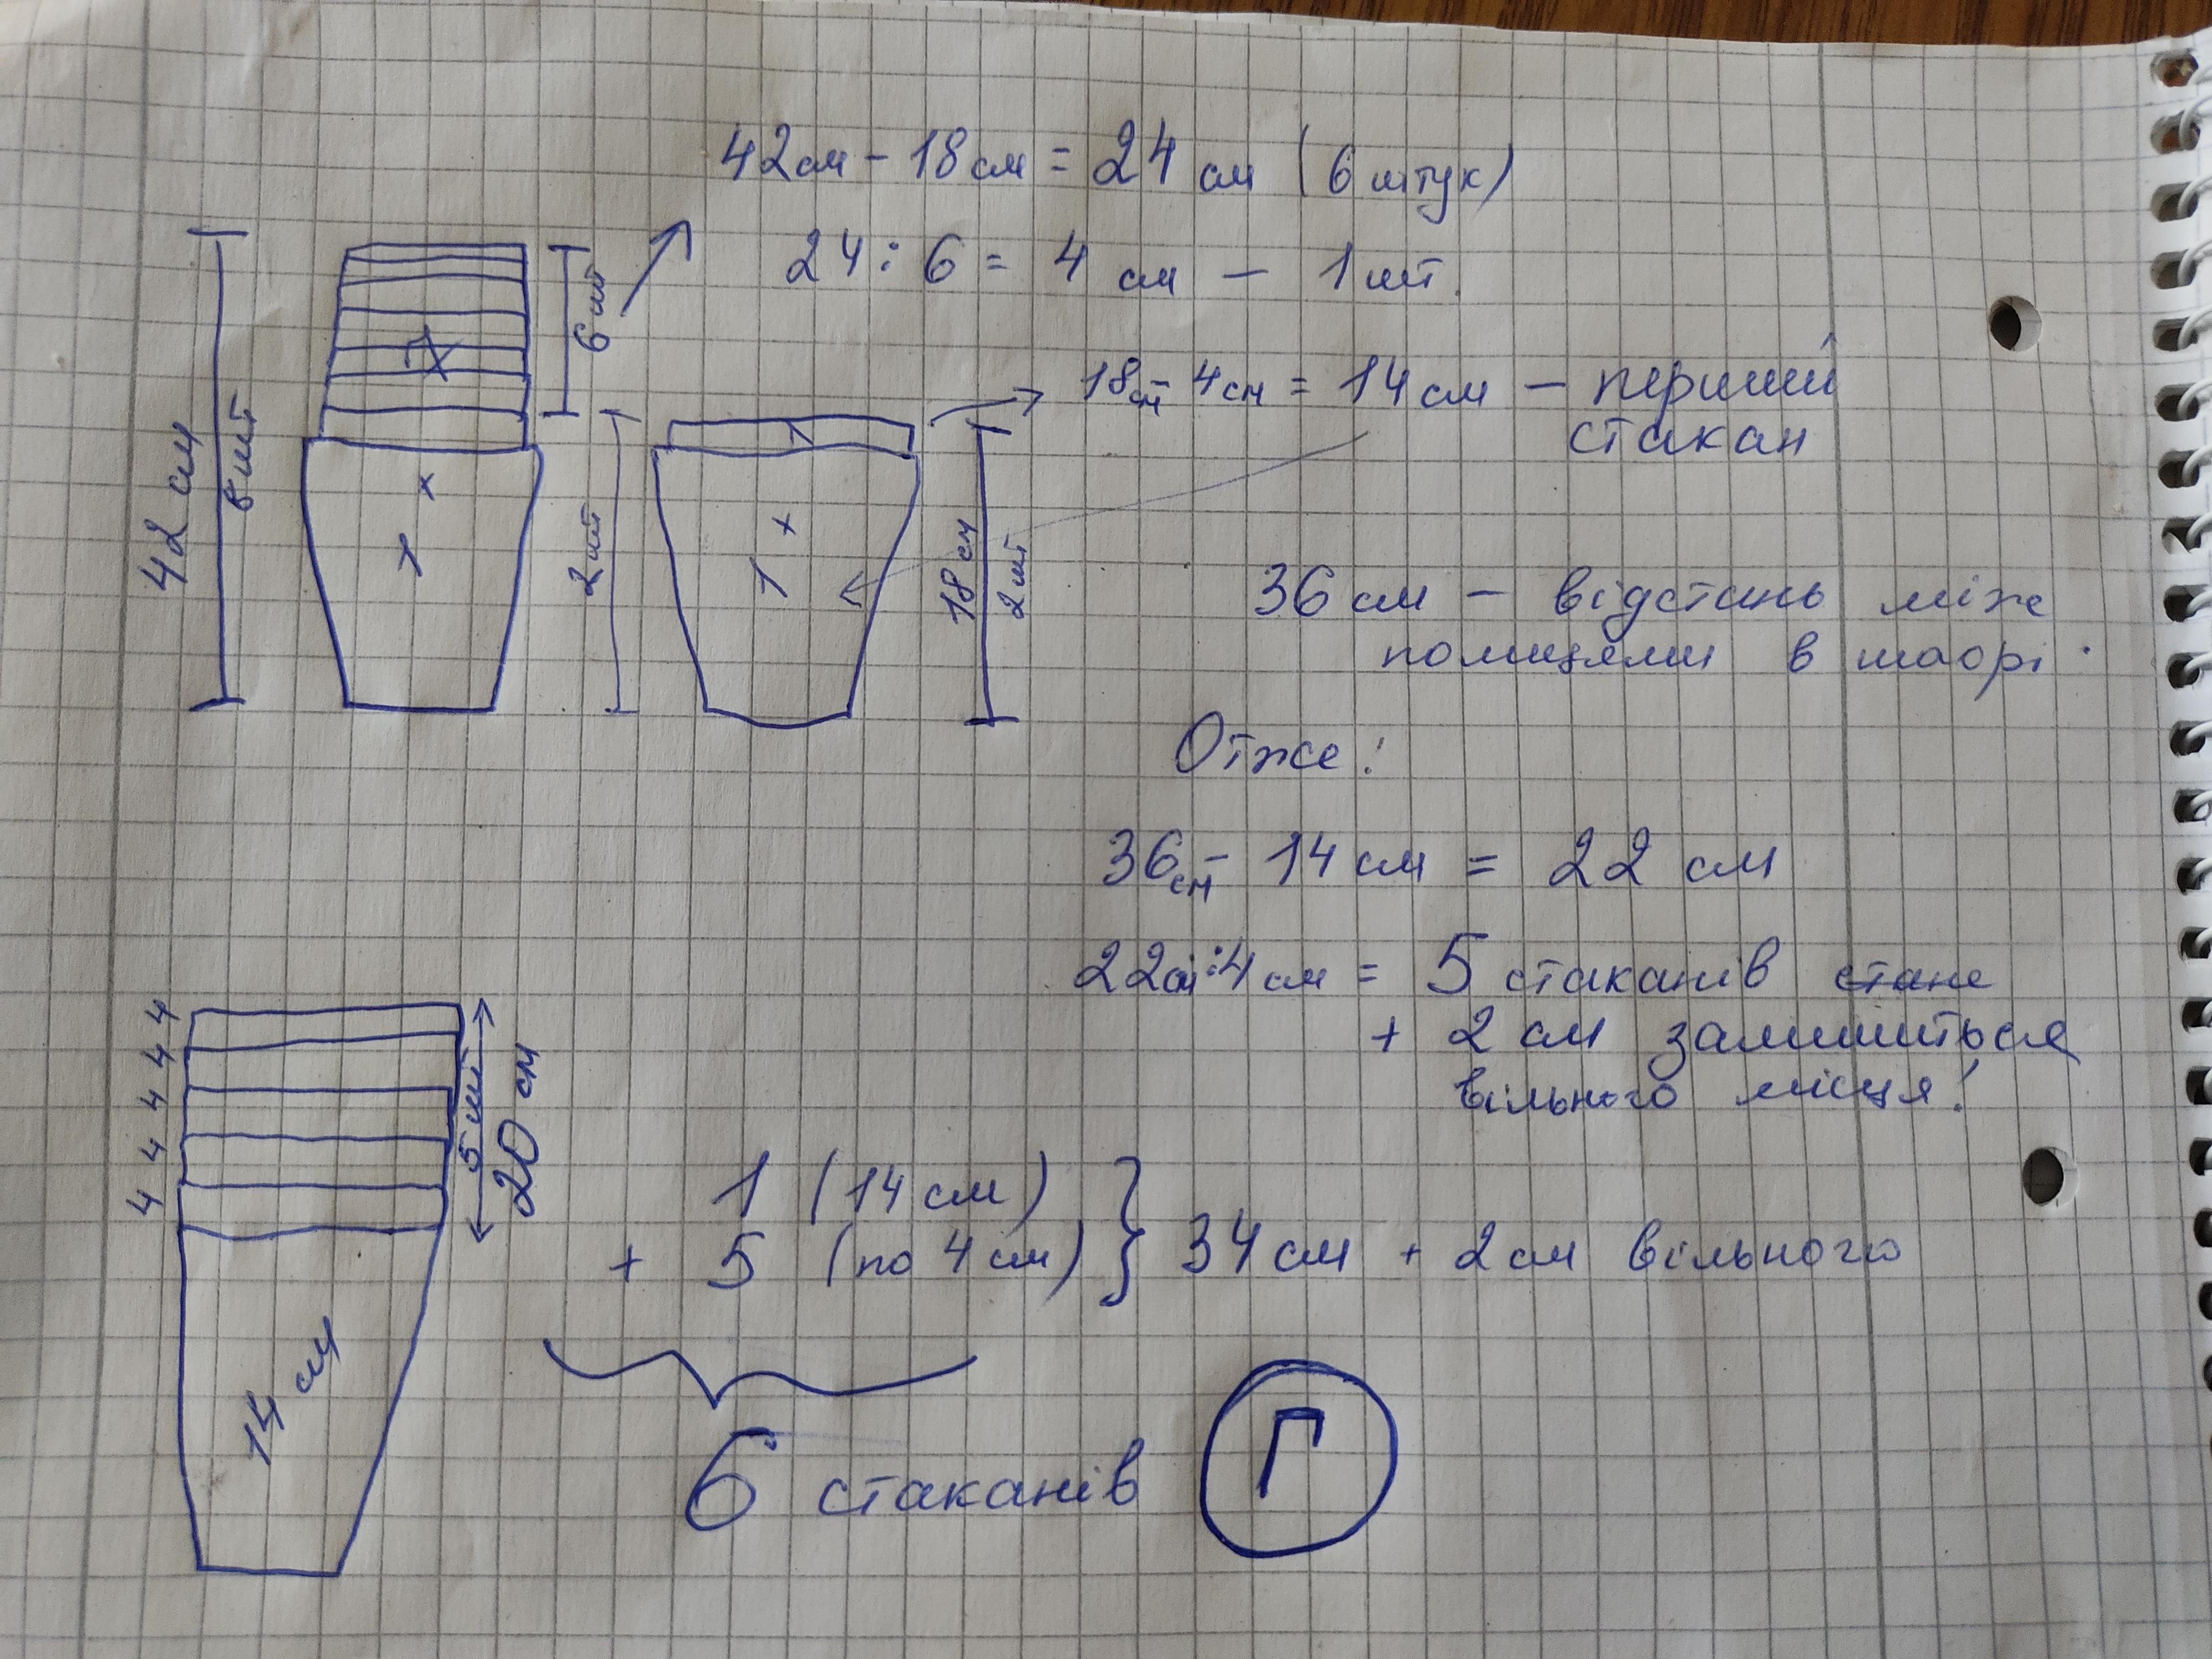 42 см - 18 см = 24 см (6 штук)
24 : 6 = 4 см - 1 шт.
42 см
8 шт
6 шт
7
1
x
2 шт
1
1
x
18 см
2 шт
18 см - 4 см = 14 см - перший
стакан
36 см - відстань між
полицями в шафі.
Отже:
36 см - 14 см = 22 см
22 см : 4 см = 5 стаканів стане
+ 2 см залишиться
вільного місця!
4
4
4
4
4
5 шт
20 см
14 см
1 (14 см)
+ 5 (по 4 см) } 34 см + 2 см вільного
6 стаканів Г